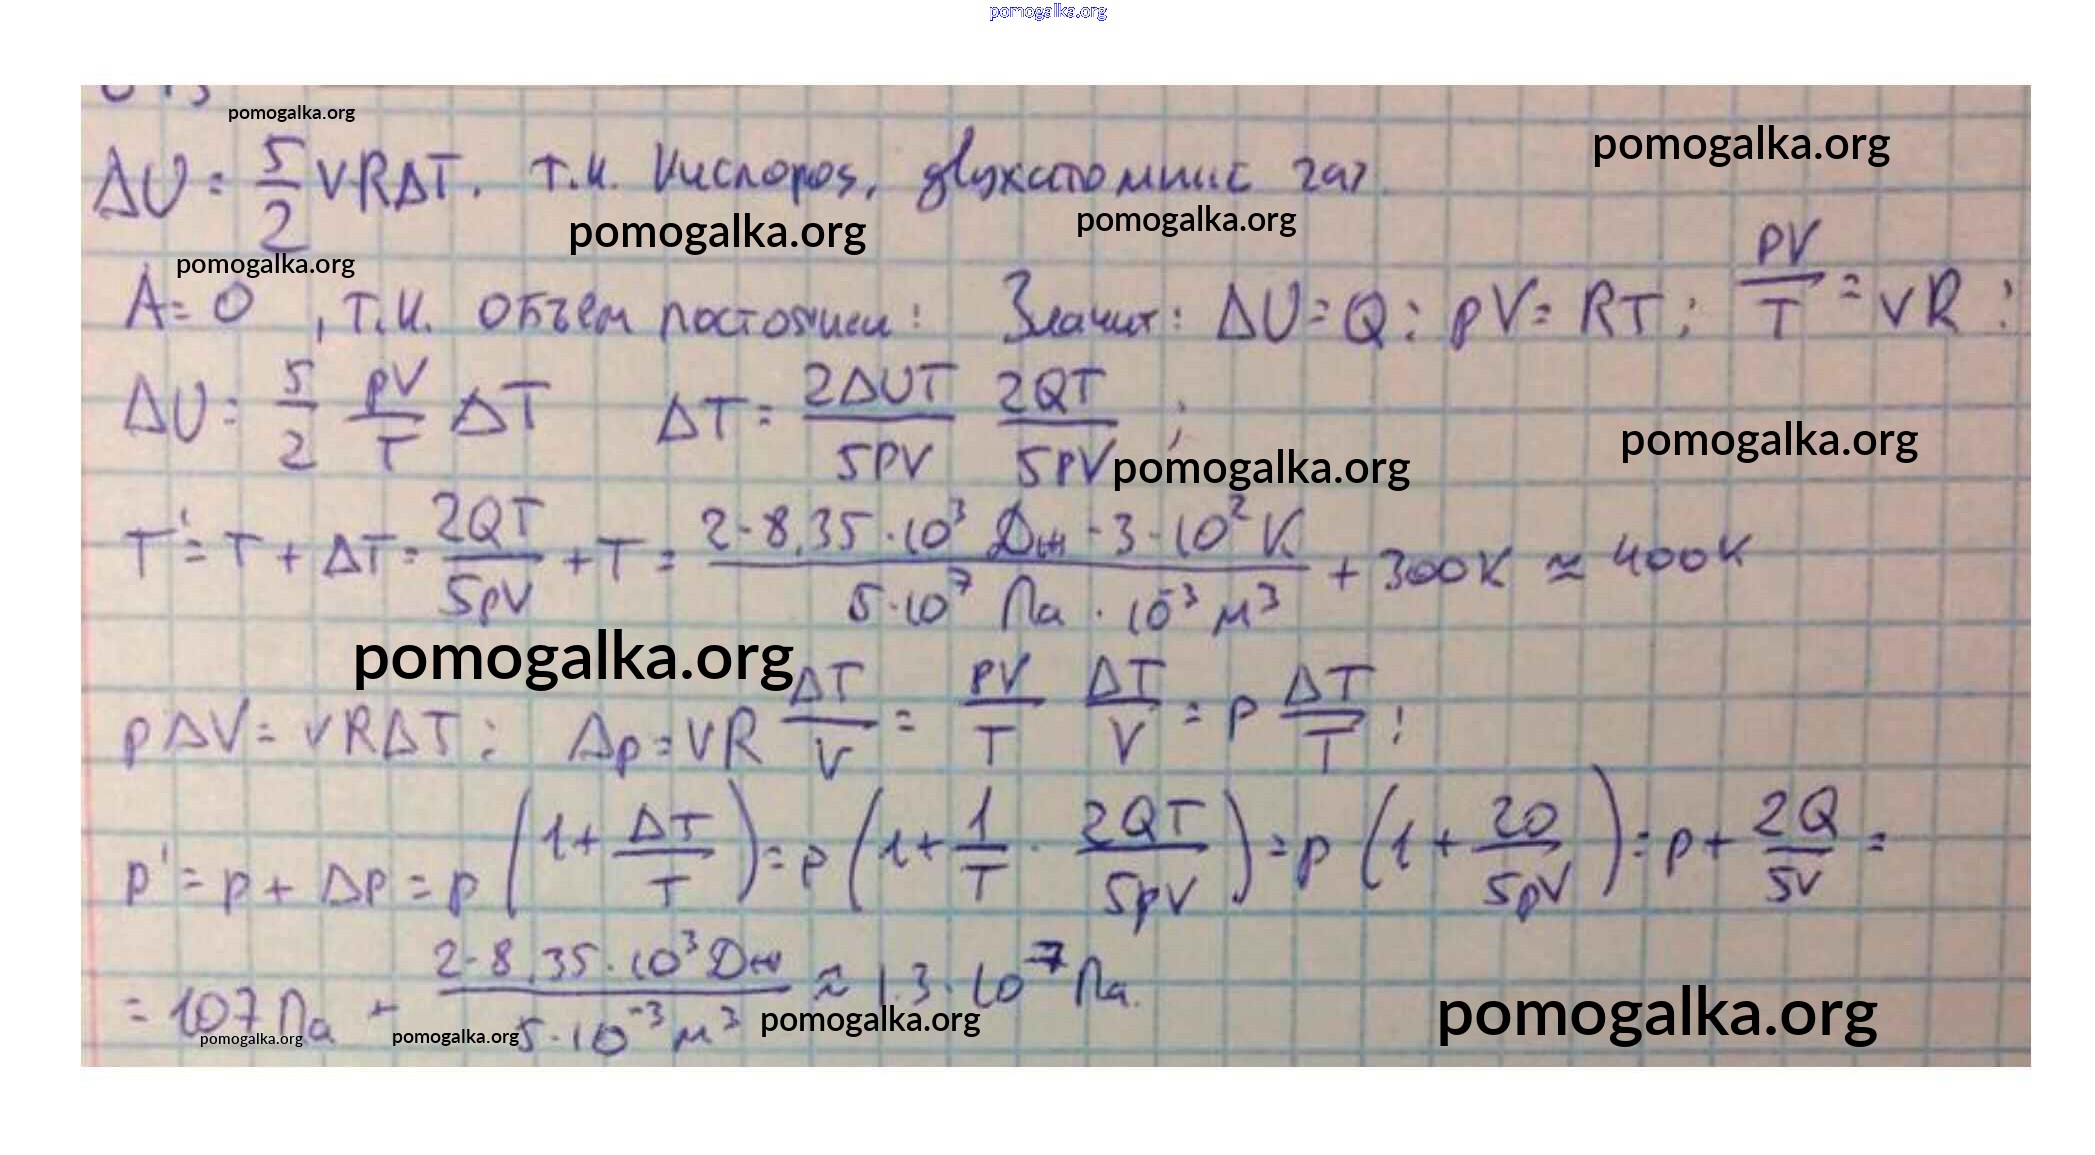 pomogalka.org
pomogalka.org
pomogalka.org
ΔU = 5/2 νRΔT. т.к. Кислород, двухатомный газ.
pomogalka.org pomogalka.org
pomogalka.org
A = 0, т.к. объём постоянен: Значит: ΔU = Q: pV = RT; PV/T = νR;
ΔU = 5/2 pV/T ΔT ΔT = 2ΔUT/5PV 2QT/5PV;
pomogalka.org pomogalka.org
T' = T + ΔT = 2QT/5pV + T = 2·8,35·10³ Дж·3·10² K/5·10⁷ Па·10⁻³ м³ + 300K ≈ 400K
pomogalka.org
pΔV = νRΔT: Δp = νR ΔT/V = PV/T ΔT/V = p ΔT/T;
p' = p + Δp = p(1 + ΔT/T) = p(1 + 1/T · 2QT/5pV) = p(1 + 2Q/5pV) = p + 2Q/5V =
= 107 Па + 2·8,35·10³ Дж/5·10⁻³ м³ ≈ 1.3·10⁻⁷ Па.
pomogalka.org pomogalka.org pomogalka.org pomogalka.org